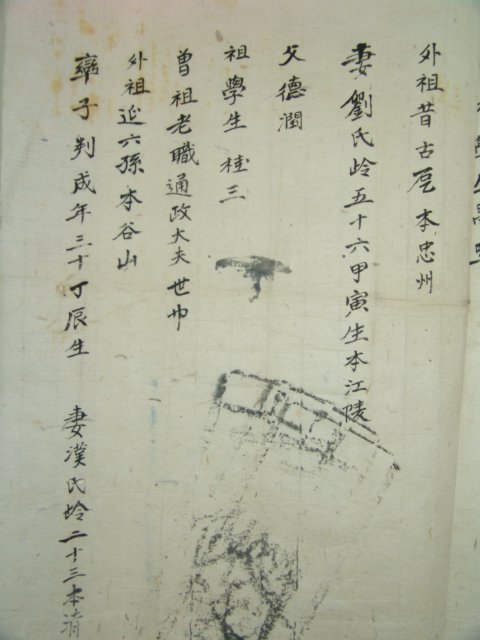 外祖昔古仺 本忠州
妻劉氏齡五十六甲寅生本江陵
父德潤
祖學生 桂三
曾祖老職通政大夫 世
外祖 六孫 本谷山
子判成年三十丁辰生 妻漢氏齡二十三本清